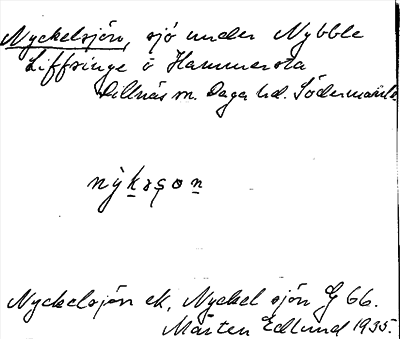 Nyckelsjön, sjö under Nybble
Liffsinge o Hammersta
Dillnäs sn. Daga hd. Söderman
nỳkɷʂon
Nyckelsjön ek, Nyckel sjön G 66.
Mårten Edlund 1935.